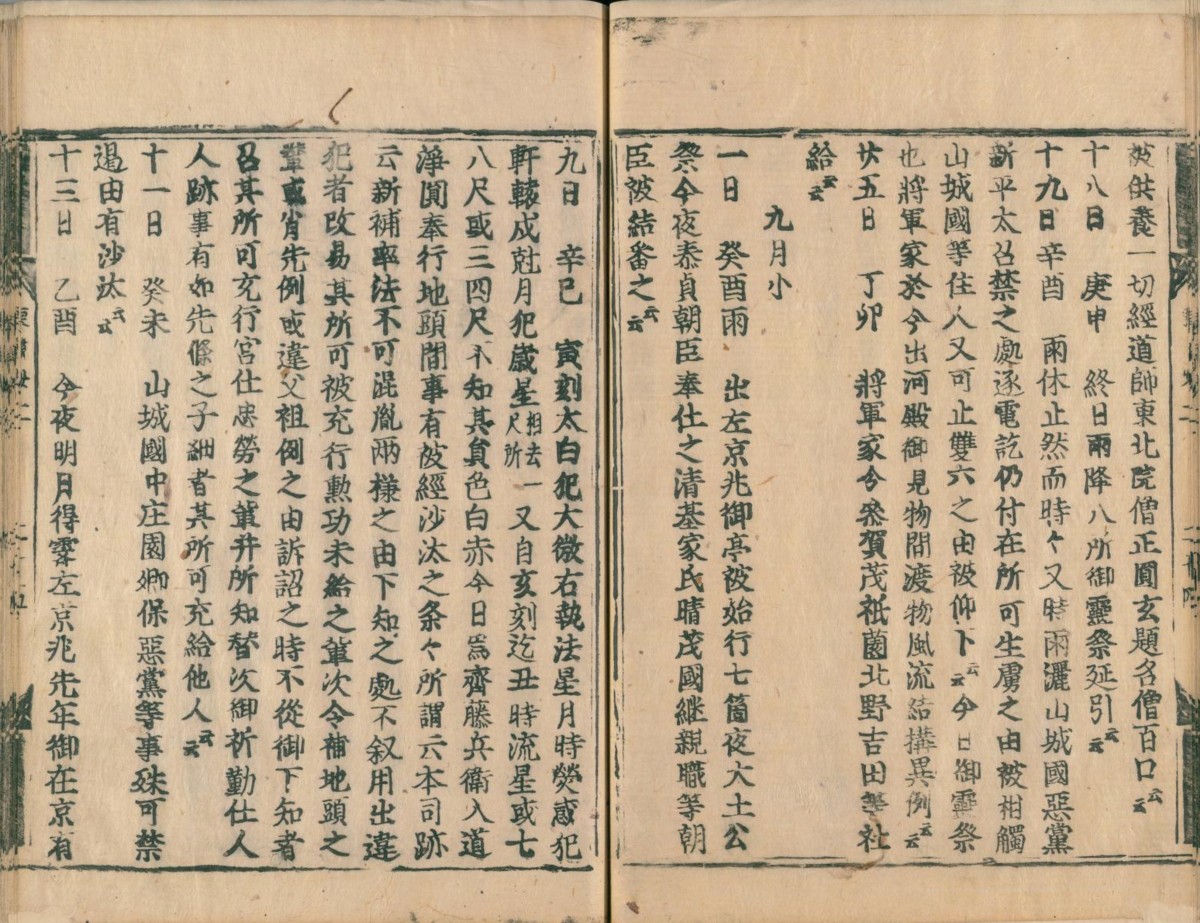 被供養一切經道師東北院僧正圓玄題名僧百口云云
十八日　庚申　終日雨降八所御靈祭延引云云
十九日辛酉　雨休止然而時々又時雨灑山城國惡黨
新平太召禁之處逐電訖仍付在所可生虜之由被相觸
山城國等住人又可止雙六之由被仰下云云今日御靈祭
也將軍家於今出河殿御見物間渡物風流結搆異例云云
廿五日　丁卯　將軍家令參賀茂祇薗北野吉田等社
給云云
九月小
一日　癸酉雨　出左京兆御亭被始行七箇夜大土公
祭今夜泰貞朝臣奉仕之清基家氏晴茂國継親職等朝
臣被結番之云云
九日　辛巳　寅刻太白犯大微右執法星月時熒惑犯
軒轅戍尅月犯歲星相去一尺所又自亥刻迄丑時流星或七
八尺或三四尺不知其員色白赤今日爲齊藤兵衛入道
淨圓奉行地頭間事有被經沙汰之条々所謂云本司跡
云新補率法不可混胤兩様之由下知之處不叙用出違
犯者改易其所可被充行勲功未給之輩次令補地頭之
輩或背先例或違父祖例之由訴詔之時不從御下知者
召其所可充行宮仕忠勞之輩并所知替次御祈勤仕人
人跡事有如先條之子細者其所可充給他人云云
十一日　癸未　山城國中庄園郷保惡黨等事殊可禁
遏由有沙汰云云
十三日　乙酉　今夜明月得霽左京兆先年御在京有